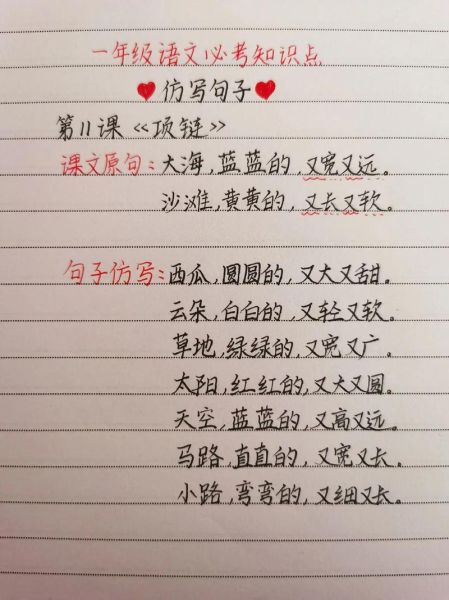 一年级语文必考知识点
仿写句子
第11课《项链》
课文原句:大海,蓝蓝的,又宽又远。
沙滩,黄黄的,又长又软。
句子仿写:西瓜,圆圆的,又大又甜。
云朵,白白的,又轻又软。
草地,绿绿的,又宽又广。
太阳,红红的,又大又圆。
天空,蓝蓝的,又高又远。
马路,直直的,又宽又长。
小路,弯弯的,又细又长。